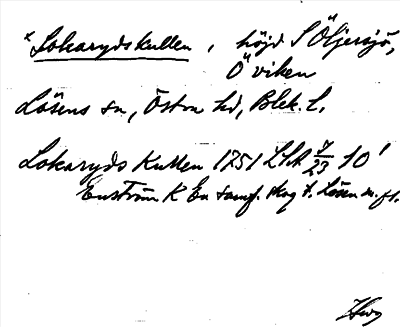 *Lokarydskullen, höjd S Öljersjö,
Ö viken
Lösens sn, Östra hd, Blek. l.
Lokaryds Kullen 1751 LSA 7/23 10'
Enström K En samf. skog t. Lösen m. fl.